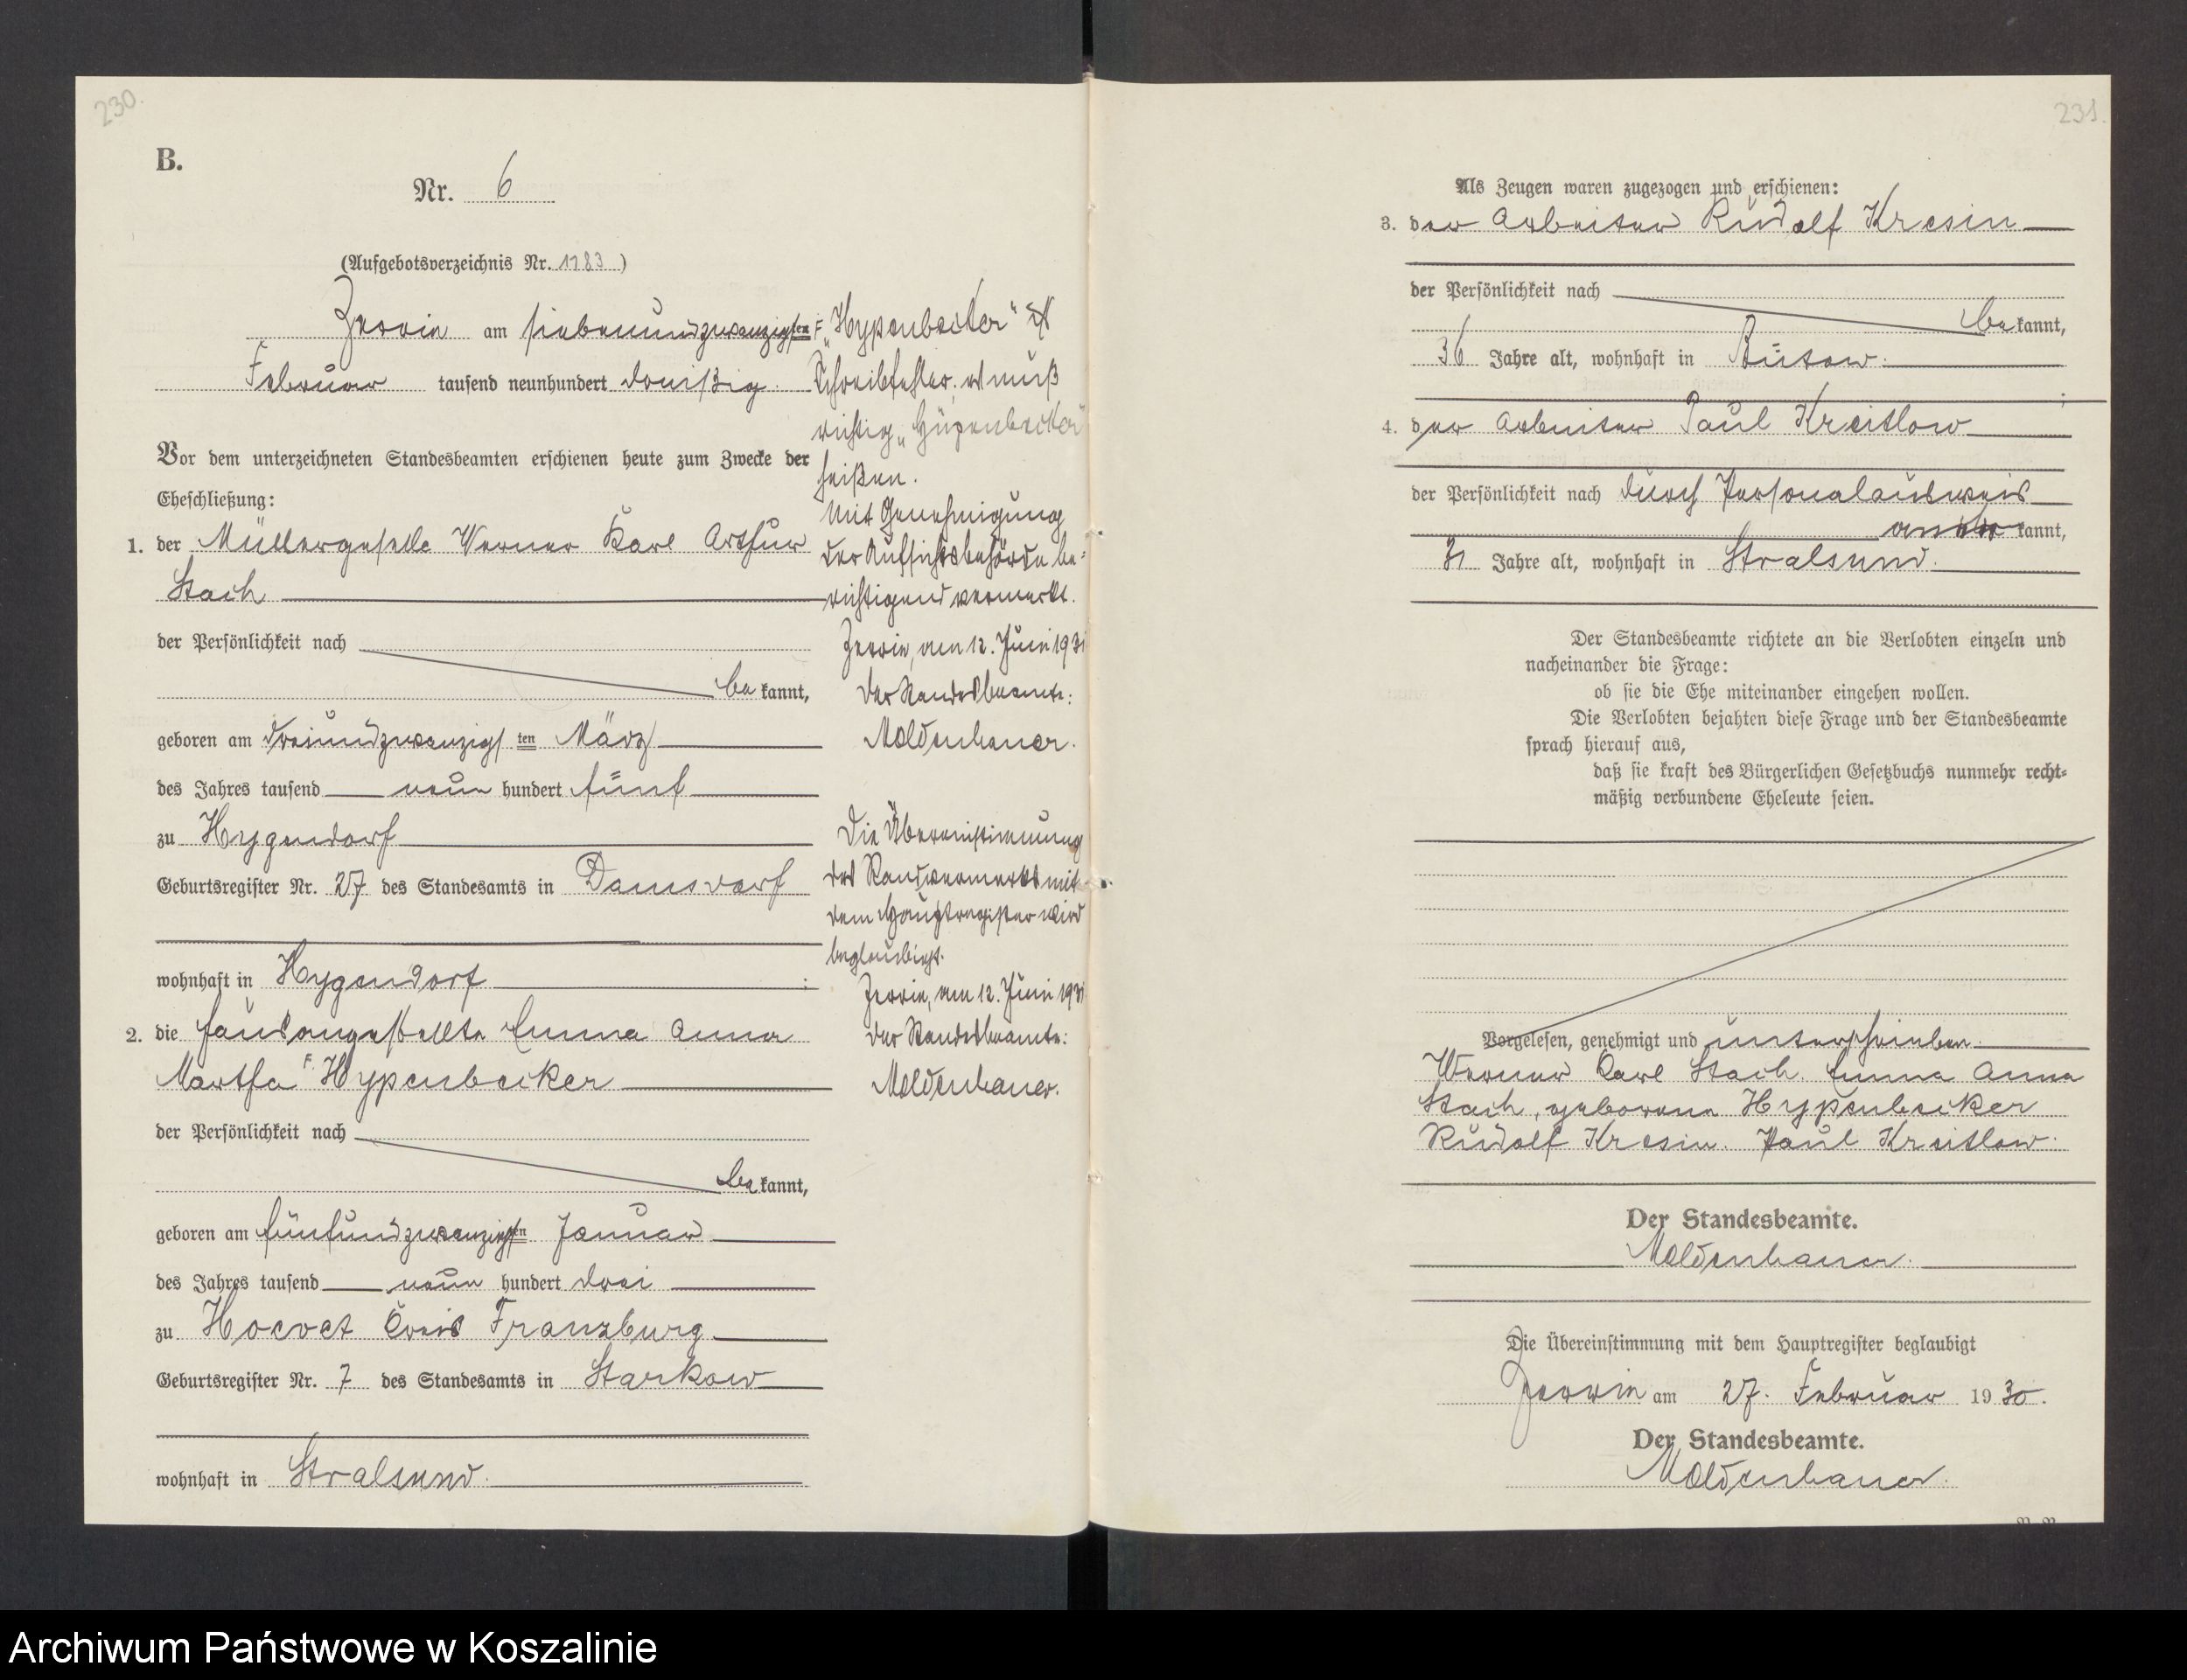 230.
B.
Nr. 6
(Aufgebotsverzeichnis Nr. 1183)
Zerrin am siebenundzwanzigsten
Februar tausend neunhundert dreißig.
Vor dem unterzeichneten Standesbeamten erschienen heute zum Zwecke der
Eheschließung:
1. der Müllergeselle Werner Karl Arthur
Stach
der Persönlichkeit nach
be kannt,
geboren am dreiundzwanzigs ten März
des Jahres tausend neun hundert fünf
zu Hygendorf
Geburtsregister Nr. 27 des Standesamts in Damsdorf
wohnhaft in Hygendorf ;
2. die Hausangestellte Emma Anna
Martha F Hypenbecker
der Persönlichkeit nach
be kannt,
geboren am fünfundzwanzigsten Januar
des Jahres tausend neun hundert drei
zu Hoevet Kreis Franzburg
Geburtsregister Nr. 7 des Standesamts in Starkow
wohnhaft in Stralsund.
F „Hypenbecker" ist
Schreibfehler, es muß
richtig „Hüpenbecker"
heißen.
Mit Genehmigung
der Aufsichtsbehörde be-
richtigend vermerkt.
Zerrin, am 12. Juni 1931
Der Standesbeamte:
Moldenhauer.
Die Übereinstimmung
des Randvermerks mit
dem Hauptregister wird
beglaubigt.
Zerrin, am 12. Juni 1931
Der Standesbeamte:
Moldenhauer.
231.
Als Zeugen waren zugezogen und erschienen:
3. der Arbeiter Rudolf Kresin
der Persönlichkeit nach
be kannt,
36 Jahre alt, wohnhaft in Bütow.
;
4. der Arbeiter Paul Kreitlow
der Persönlichkeit nach durch Personalausweis
kannt,
31 Jahre alt, wohnhaft in Stralsund.
Der Standesbeamte richtete an die Verlobten einzeln und
nacheinander die Frage:
ob sie die Ehe miteinander eingehen wollen.
Die Verlobten bejahten diese Frage und der Standesbeamte
sprach hierauf aus,
daß sie kraft des Bürgerlichen Gesetzbuchs nunmehr recht-
mäßig verbundene Eheleute seien.
Vorgelesen, genehmigt und unterschrieben.
Werner Karl Stach. Emma Anna
Stach, geborene Hypenbecker
Rudolf Kresin. Paul Kreitlow.
Der Standesbeamte.
Moldenhauer.
Die Übereinstimmung mit dem Hauptregister beglaubigt
Zerrin am 27. Februar 1930.
Der Standesbeamte.
Moldenhauer.
Archiwum Państwowe w Koszalinie